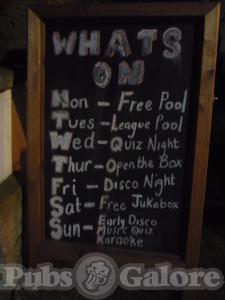 WHATS
ON
Mon - Free Pool
Tues - League Pool
Wed - Quiz Night
Thur - Open the Box
Fri - Disco Night
Sat - Free Jukebox
Sun - Early Disco
Music Quiz
Karaoke
Pubs Galore